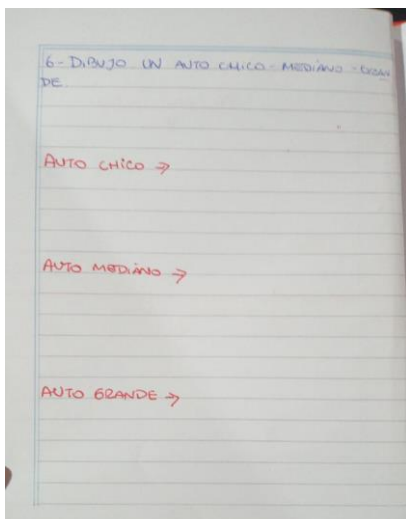 6- DIBUJO UN AUTO CHICO - MEDIANO - GRAN
DE.
AUTO CHICO →
AUTO MEDIANO →
AUTO GRANDE →